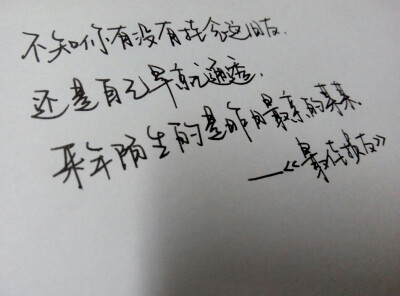 不知你有没有挂念这旧友.
还是自己早就通透.
来年陌生的是昨日最亲的某某.
——《最佳损友》